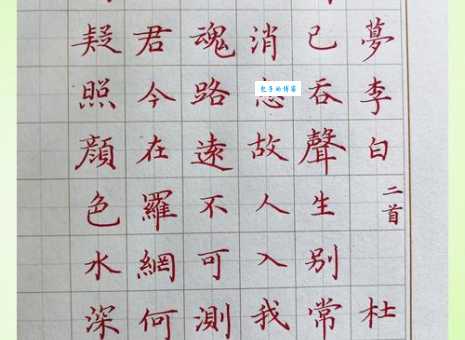 夢李白二首 杜
已吞聲生別常
消息故人入我
魂路遠不可測
君今在羅網何
疑照顏色水深